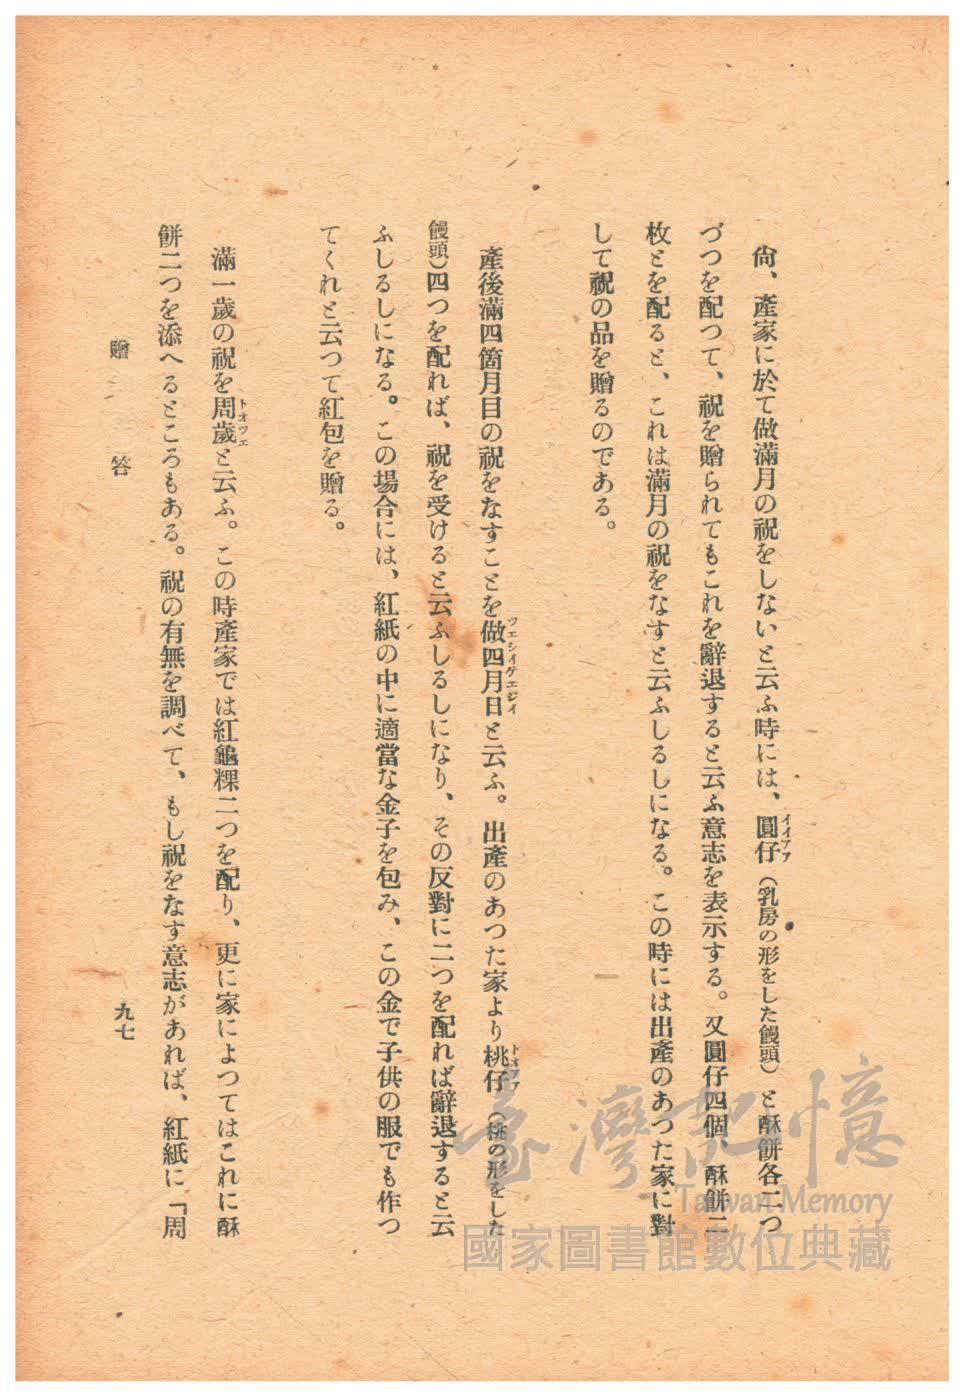 尙、產家に於て做滿月の祝をしないと云ふ時には、圓仔（乳房の形をした饅頭）と酥餅各二つ
イイアア
づつを配つて、祝を贈られてもこれを辭退すると云ふ意志を表示する。又圓仔四個、酥餅二
枚とを配ると、これは滿月の祝をなすと云ふしるしになる。この時には出產のあつた家に對
して祝の品を贈るのである。
產後滿四箇月目の祝をなすことを做四月日と云ふ。出產のあつた家より桃仔（桃の形をした
ツエシイゲエジイ
トオアア
饅頭）四つを配れば、祝を受けると云ふしるしになり、その反對に二つを配れば辭退すると云
ふしるしになる。この場合には、紅紙の中に適當な金子を包み、この金で子供の服でも作つ
てくれと云つて紅包を贈る。
滿一歲の祝を周歲と云ふ。この時產家では紅龜粿二つを配り、更に家によつてはこれに酥
トオツエ
餅二つを添へるところもある。祝の有無を調べて、もし祝をなす意志があれば、紅紙に「周
贈答
九七
臺灣記憶
Taiwan Memory
國家圖書館數位典藏